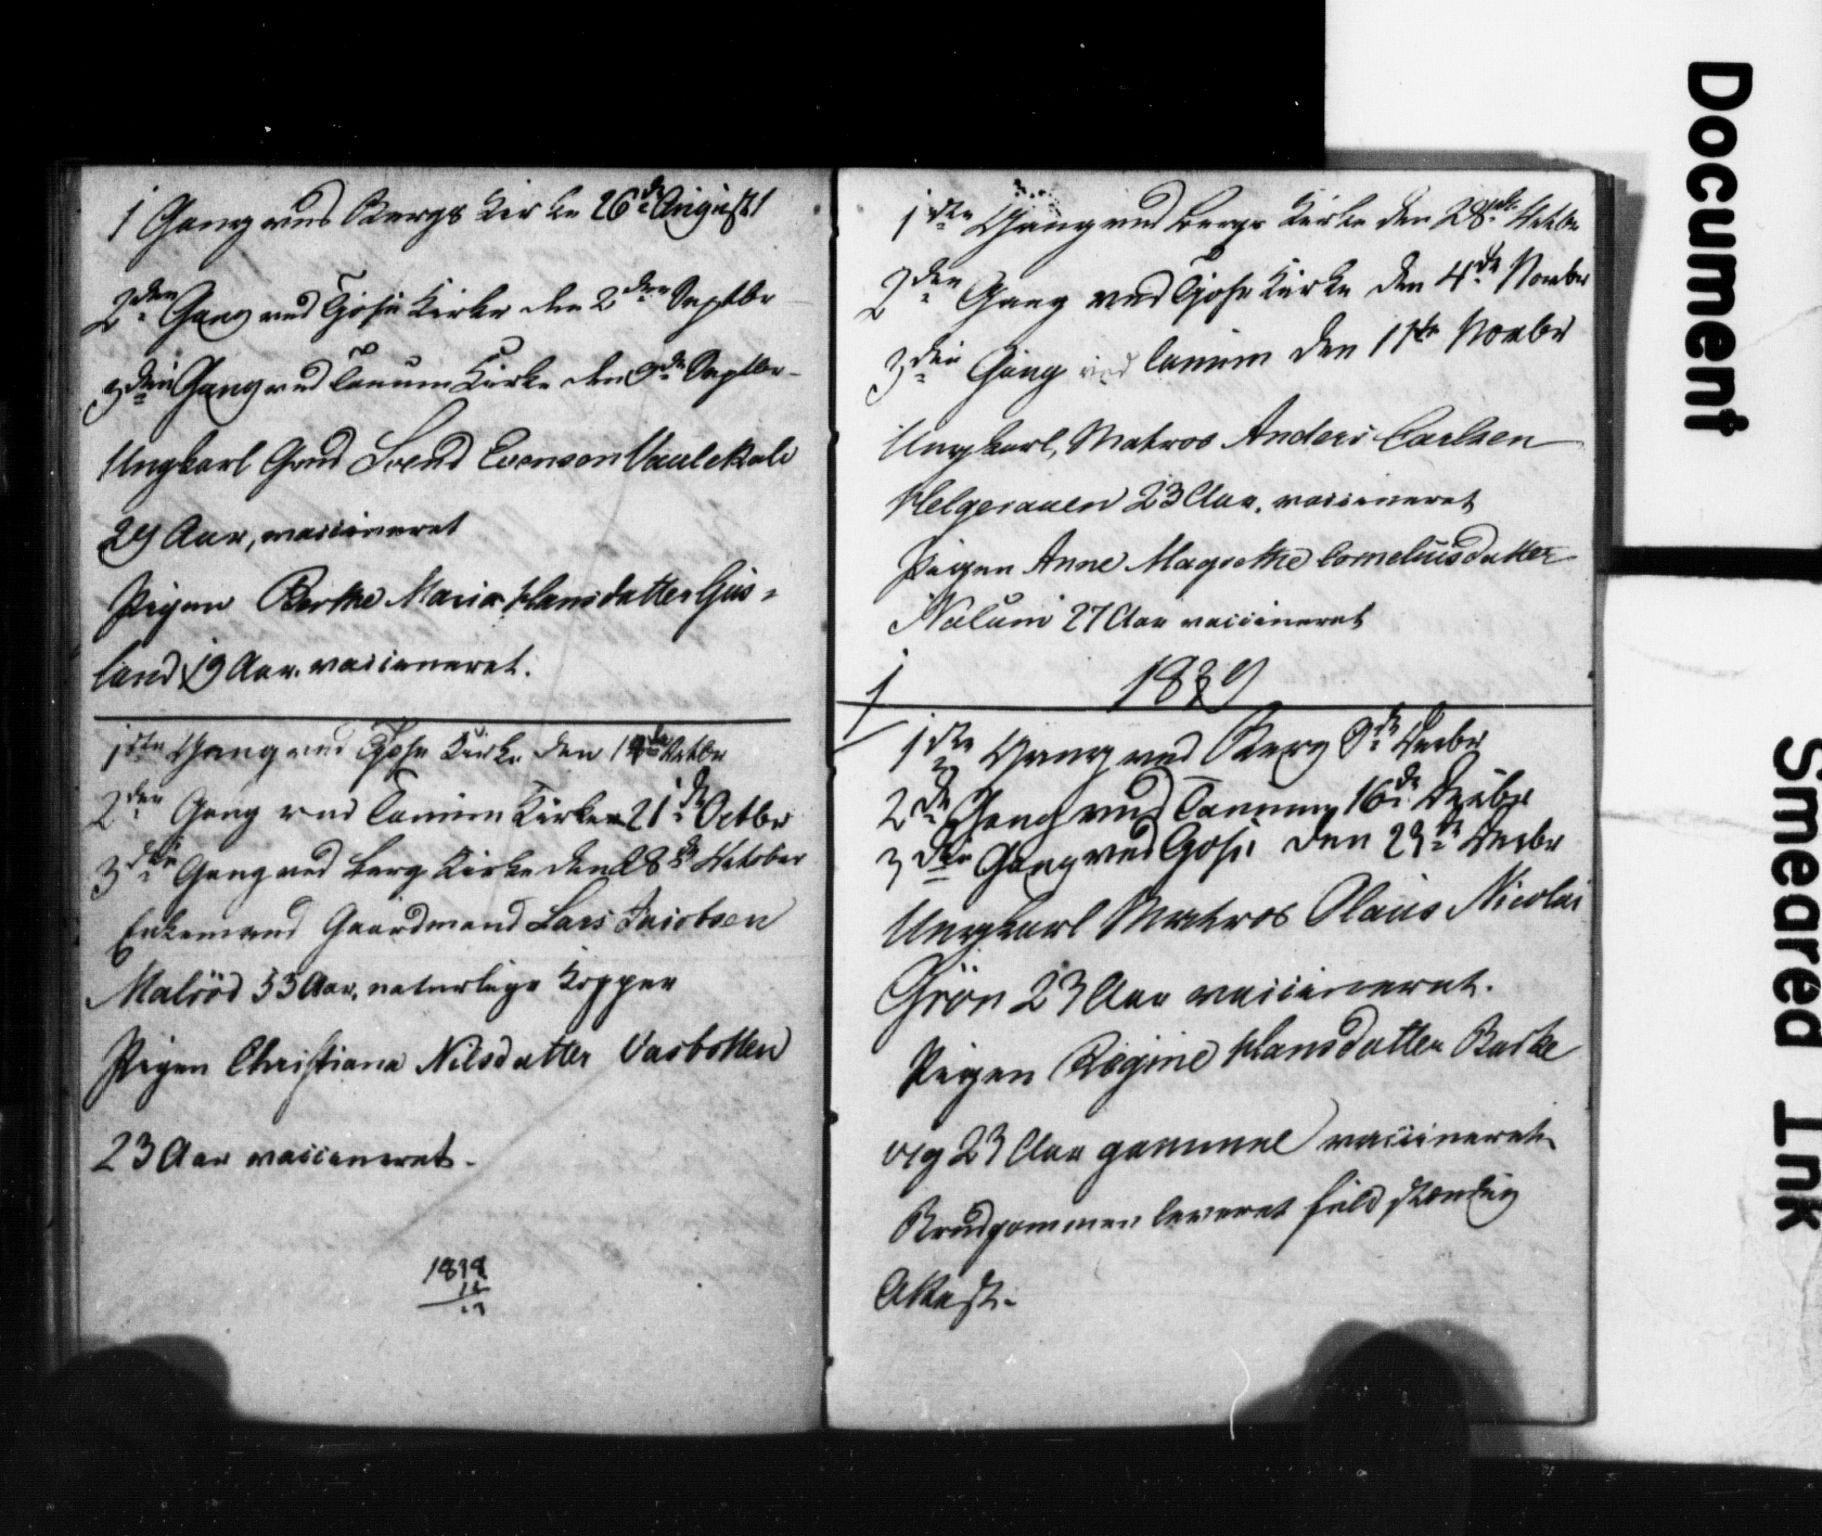 1 Gang ved Bergs Kirke 26de August
2den Gang ved Tjøse Kirke den 2den Septbr
3die Gang ved Tanum Kirke den 9de Septbr
Ungkarl Grd Svend Evenson
29 Aar, vaccineret
Pigen Berthe Maria Hansdatter Gus-
land 19 Aar. vaccineret.
1ste Gang ved Tjøse Kirke den 14de Octbr
2den Gang ved Tanum Kirke 21de Octbr
3die Gang ved Berg Kirke den 28de October
Enkemand Gaardmand Lars Jacobsen
Malröd 53 Aar, naturlige Kopper
Pigen Christiana Nilsdatter Vasbotten
23 Aar vaccineret.
1ste Gang ved Bergs Kirke den 28de Octbr
2den Gang ved Tjøse Kirke den 4de Novbr
3die Gang ved Tanum den 11te Novbr
Ungkarl, Matros Anders Carlsen
Helgeraaen 23 Aar. vaccineret
Pigen Anne Magrethe Corneliusdatter
Nalum 27 Aar vaccineret
1839
1ste Gang ved Berg 9de Decbr
2den Gang ved Tanum 16de Decbr
3die Gang ved Tjøse den 23de Decbr
Ungkarl Matros Olaus Nicolai
Grön 23 Aar vaccineret.
Pigen Regine Hansdatter Barke
vig 23 Aar gammel vaccineret
Brudgommen leveret fuldstændig
Attest.
Document
Smeared Ink